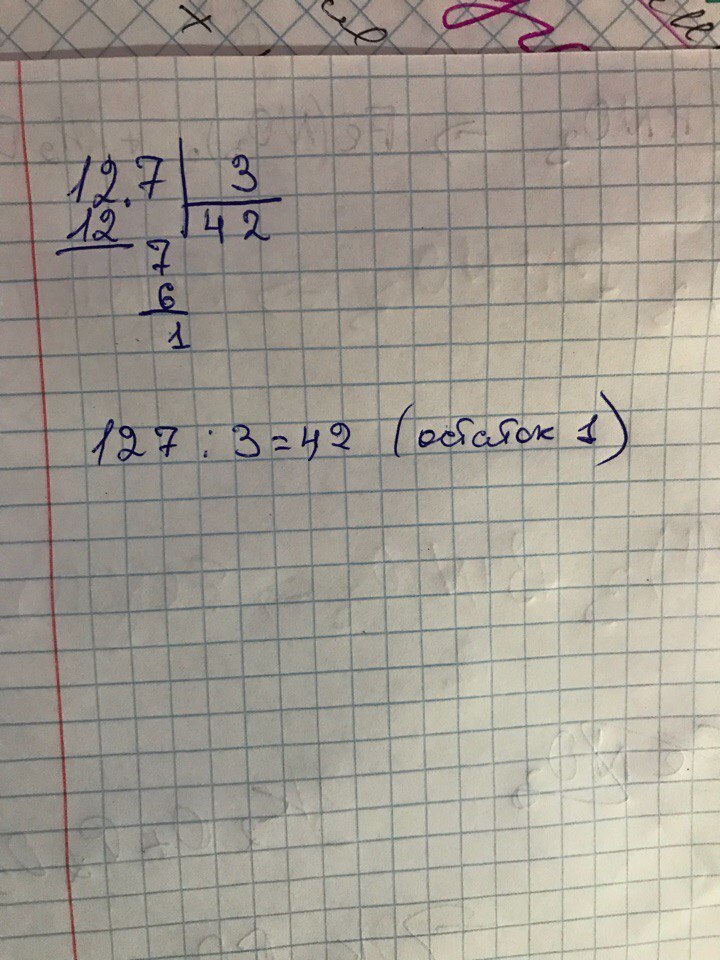 12.7 3
12 42
7
6
1
127 : 3 = 42 (остаток 1)